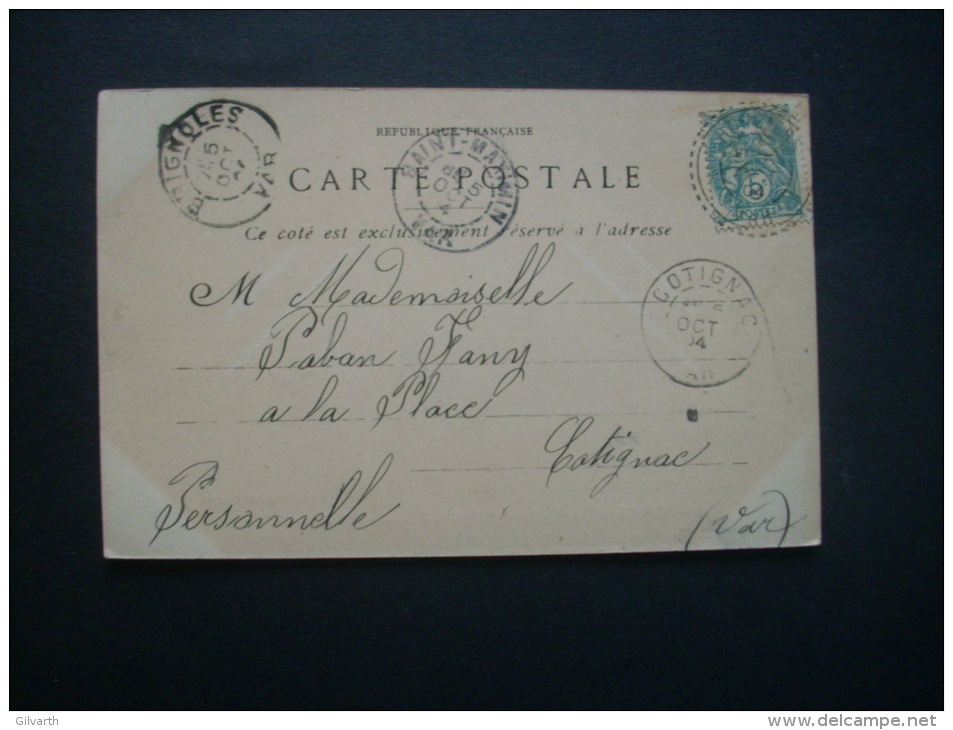 BRIGNOLES
VAR
5
OCT
REPUBLIQUE FRANÇAISE
CARTE POSTALE
SAINT-MAXIMIN
VAR
Ce coté est exclusivement réservé a l'adresse
5
POSTES
M Mademoiselle
Paban Fany
a la Place
Cotignac
Personnelle
(Var)
COTIGNAC
OCT
04
Gilvarth
www.delcampe.net